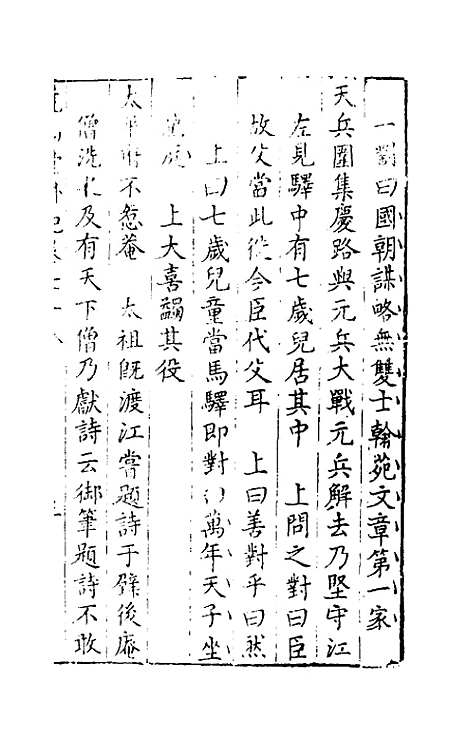 一對曰國朝謀略無雙士翰苑文章第一家
天兵圍集慶路與元兵大戰元兵解去乃堅守江
左見驛中有七歲兒居其中　上問之對曰臣
故父當此役今臣代父耳　上曰善對乎曰然
上曰七歲兒童當馬驛即對曰萬年天子坐
上大喜蠲其役
太平府不惹菴　太祖既渡江嘗題詩于壁後庵
僧洗之及有天下僧乃獻詩云御筆題詩不敢